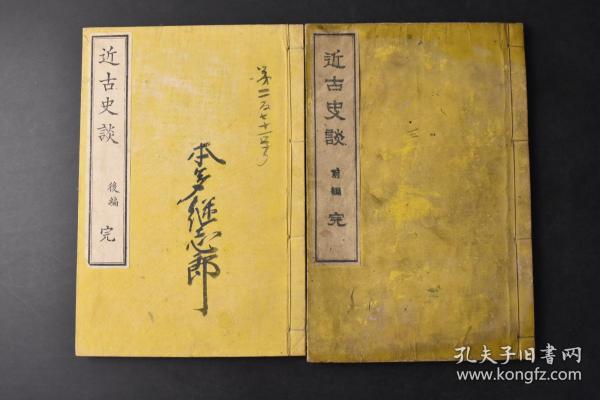 近古史談
後編
完
本多継志郎
近古史談
前編
完
孔夫子旧书网
www.kongfz.com